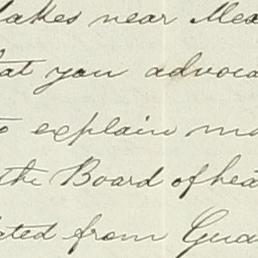 lakes near Mex
at you advoca
to explain mo
the Board of hea
ated from Gua